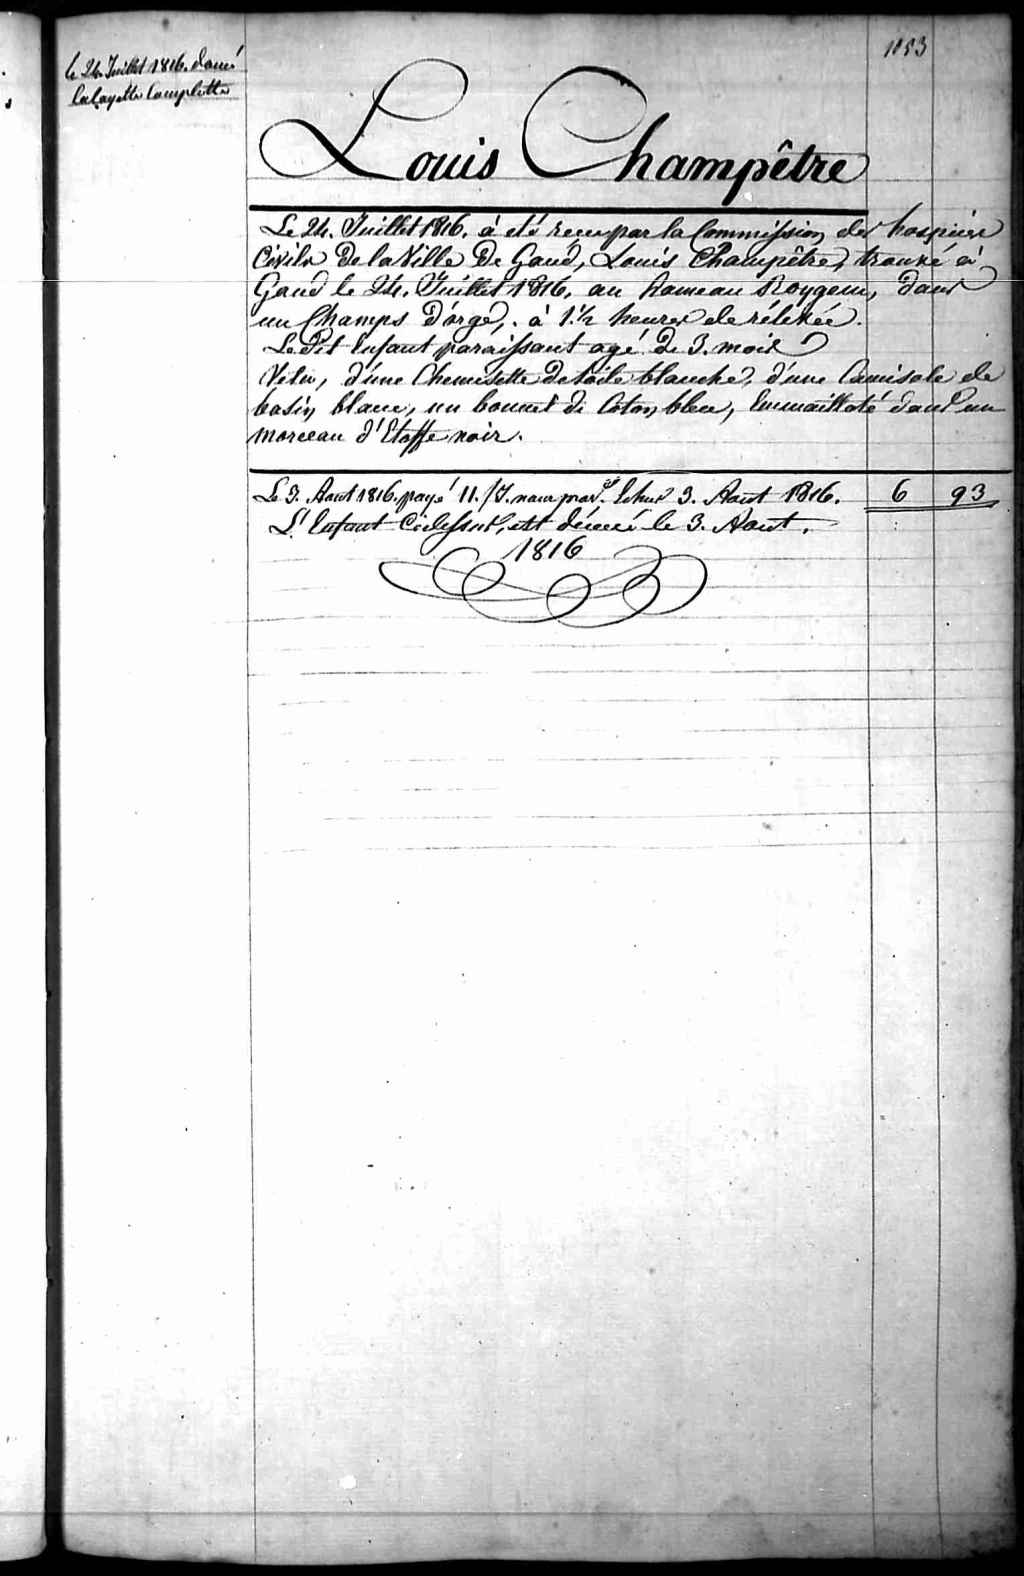 1053
le 24 Juillet 1816. donné
la layette Complette
Louis Champêtre
Le 24. Juillet 1816. à été recu par la Commission des hospices
Civils de la Ville de Gand, Louis Champêtre, trouve à
Gand le 24. Juillet 1816. au hameau Roygem, dans
un Champs d'orge, à 1.½ heures de rélevée.
Le Dit Enfant paraissant agé de 3. mois
Vetu, d'une Chemisette de toile blanche, d'une Camisole de
basin blanc, un bonnet de Coton bleu, Emmailloté dans un
morceau d'Etoffe noir.
Le 3. Aout 1816. payé 11. /J. nour. 3. Aout 1816. 6 93
L'Enfant Cidessus, est décedé le 3. Aout.
1816